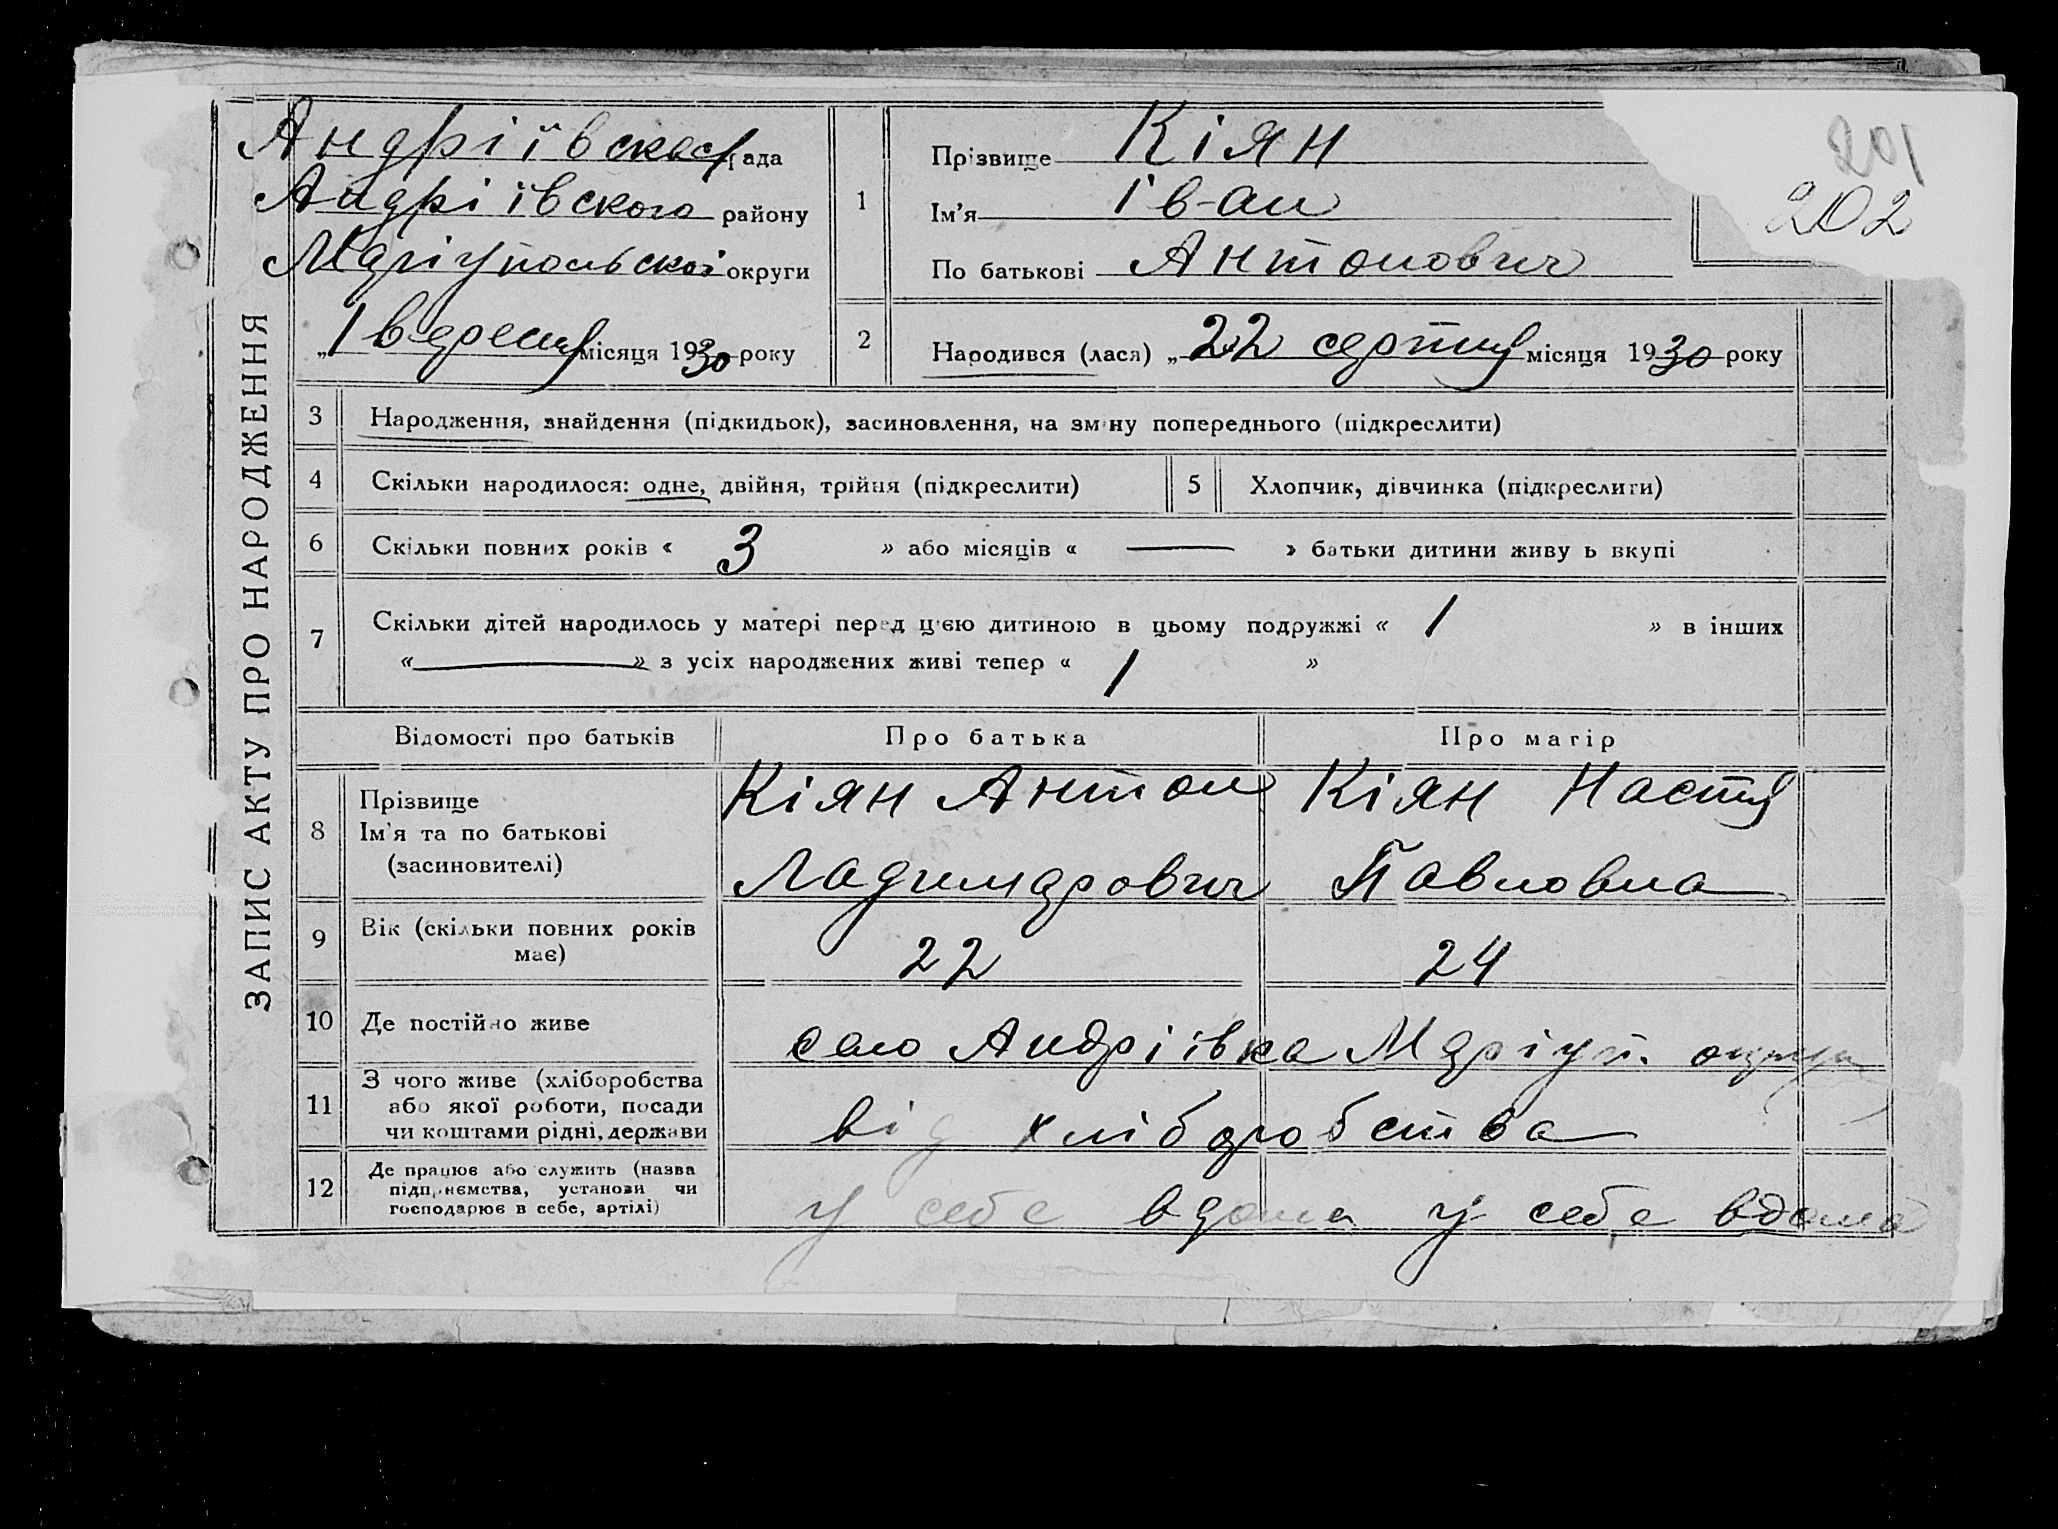 ЗАПИС АКТУ ПРО НАРОДЖЕННЯ
Андріївская рада
Андріївского району
Маріупольскої округи
„1 вересня місяця 1930 року
201
202
1 Прізвище Кіян
Ім'я Іван
По батькові Антонович
2 Народився (лася) „22 серпня місяця 1930 року
3 Народження, знайдення (підкидьок), засиновлення, на зміну попереднього (підкреслити)
4 Скільки народилося: одне, двійня, трійня (підкреслити) 5 Хлопчик, дівчинка (підкреслити)
6 Скільки повних років « 3 » або місяців « — » батьки дитини живуть вкупі
7 Скільки дітей народилось у матері перед цією дитиною в цьому подружжі « 1 » в інших
« — » з усіх народжених живі тепер « 1 »
Відомості про батьків Про батька Про матір
8 Прізвище
Ім'я та по батькові
(засиновителі)
Кіян Антон
Ладимарович
Кіян Настя
Павловна
9 Вік (скільки повних років
має)
22 24
10 Де постійно живе село Андріївка Маріуп. округа
11 З чого живе (хліборобства
або якої роботи, посади
чи коштами рідні, держави
від хліборобства
12 Де працює або служить (назва
підприємства, установи чи
господарює в себе, артілі)
у себе вдома у себе вдома